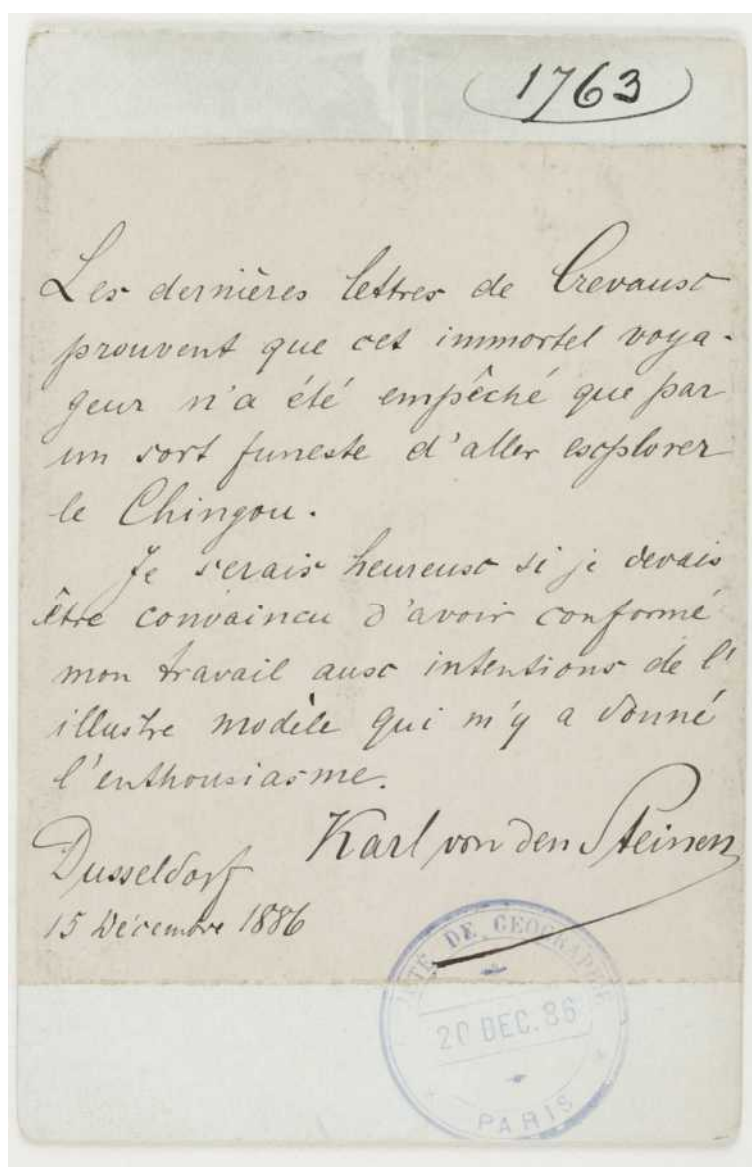 1763
Les dernières lettres de Crevaux
prouvent que cet immortel voya-
geur n'a été empêché que par
un sort funeste d'aller explorer
le Chingou.
Je serais heureux si je devais
être convaincu d'avoir conformé
mon travail aux intentions de l'
illustre modèle qui m'y a donné
l'enthousiasme.
Karl von den Steinen
Dusseldorf
15 Décembre 1886
DE GEOGRAPHIE
20 DEC. 86
PARIS